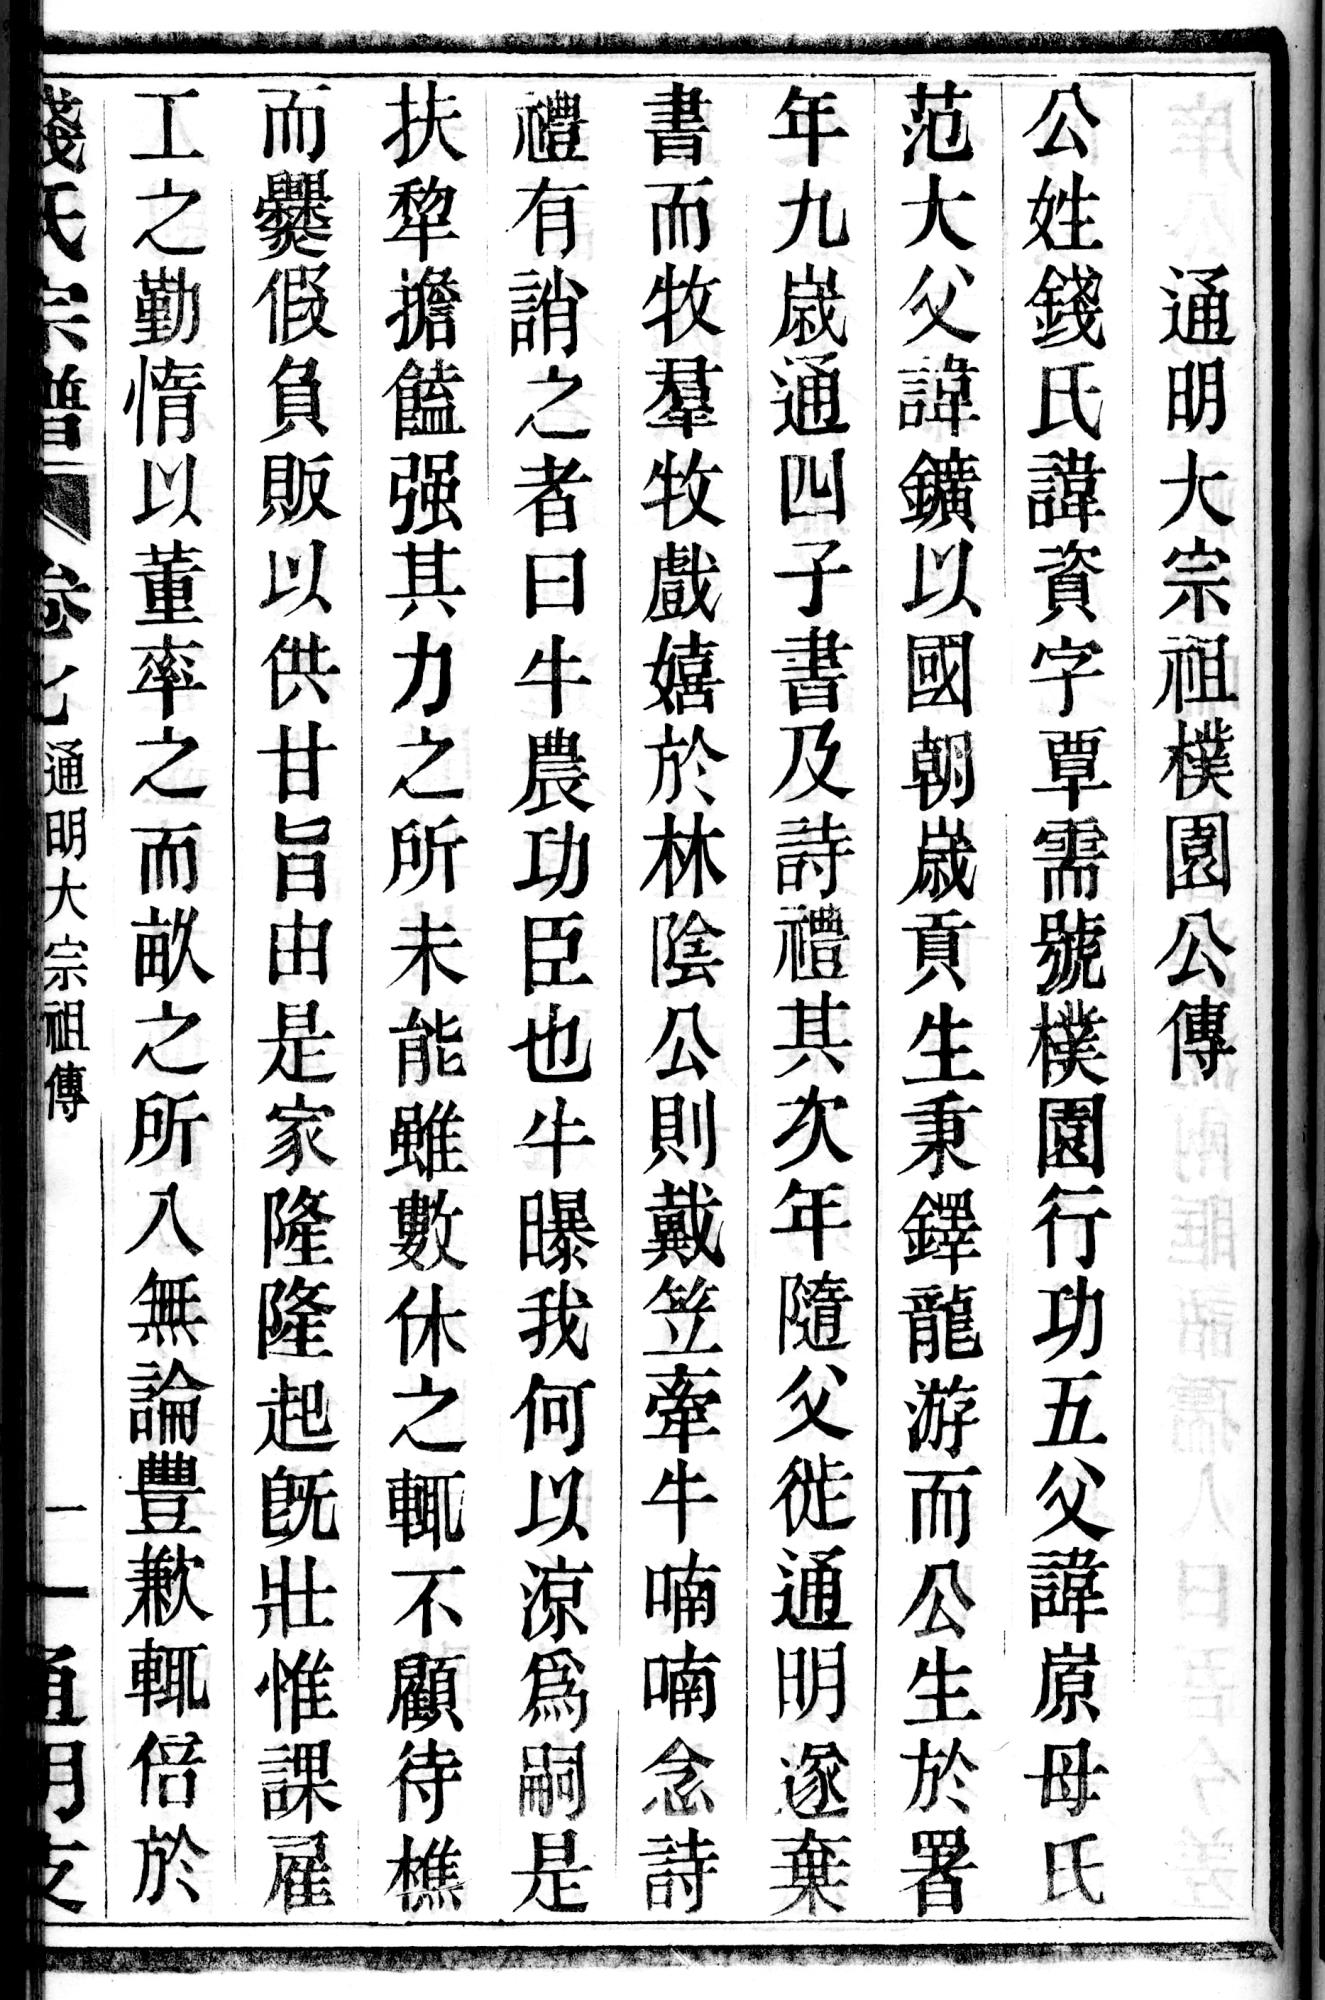 通明大宗祖樸園公傳
公姓錢氏諱資字覃需號樸園行功五父諱崱母氏
范大父諱鑛以國朝歲貢生秉鐸龍游而公生於署
年九歲通四子書及詩禮其次年隨父徙通明遂棄
書而牧羣牧戲嬉於林陰公則戴笠牽牛喃喃念詩
禮有誚之者曰牛農功臣也牛曝我何以涼爲嗣是
扶犂擔饁强其力之所未能雖數休之輒不顧待樵
而爨假負販以供甘旨由是家隆隆起旣壯惟課雇
工之勤惰以董率之而畝之所入無論豐歉輒倍於
錢氏宗譜 卷七 通明大宗祖傳 一 通明支